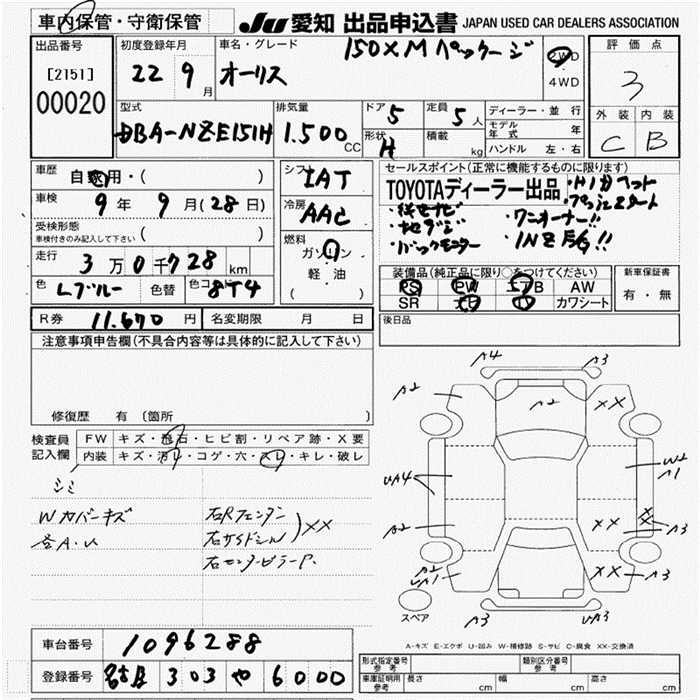 車内保管・守衛保管
JU 愛知 出品申込書 JAPAN USED CAR DEALERS ASSOCIATION
出品番号
[2151]
00020
初度登録年月
22 9月
車名・グレード
150X M パッケージ
オーリス
2WD
4WD
評価点
3
外装 内装
C B
型式
DBA-NZE151H
排気量
1.500 CC
ドア 5
形状 H
定員 5人
積載 kg
ディーラー・並行
モデル年式 年
ハンドル 左・右
車歴
自家用・( )
車検
9年 9月(28日)
受検形態
車検付きのみ記入して下さい ( )
走行
3万0千728km
色 Lブルー 色替 色コード 8T4
シフト IAT
冷房 AAC
燃料
ガソリン
軽油
( )
セールスポイント(正常に機能するものに限ります)
TOYOTAディーラー出品
・HIDヘッド
・プッシュスタート
・純正ナビ
・地デジ
・バックモニター
・ワンオーナー!!
・1NZ
装備品(純正品に限り○をつけてください)
PS PW エアB AW
SR ナビ TV カワシート
新車保証書
有・無
R券 11.670円 名変期限 月 日
後日品
注意事項申告欄(不具合内容等は具体的に記入して下さい)
修復歴 有 〔箇所
検査員記入欄
FW キズ・飛石・ヒビ割・リペア跡・X要
内装 キズ・汚レ・コゲ・穴・スレ・キレ・破レ
シミ
Wカバーキズ
右Rフェンダー
右サイドシル
右センターピラーP.
XX
A4
A3
A2
A2
XX
UA4
W2
A1
A2
XX
XX
A3
A2
UA1
XX
A3
A3
UA3
スペア
A-キズ E-エクボ U-凹み W-補修跡 S-サビ C-腐食 XX-交換済
車台番号 1096288
登録番号 名古屋 303 や 6000
形式指定番号 参考
類別区分番号 参考
車庫証明用 参考
長さ cm 幅 cm 高さ cm